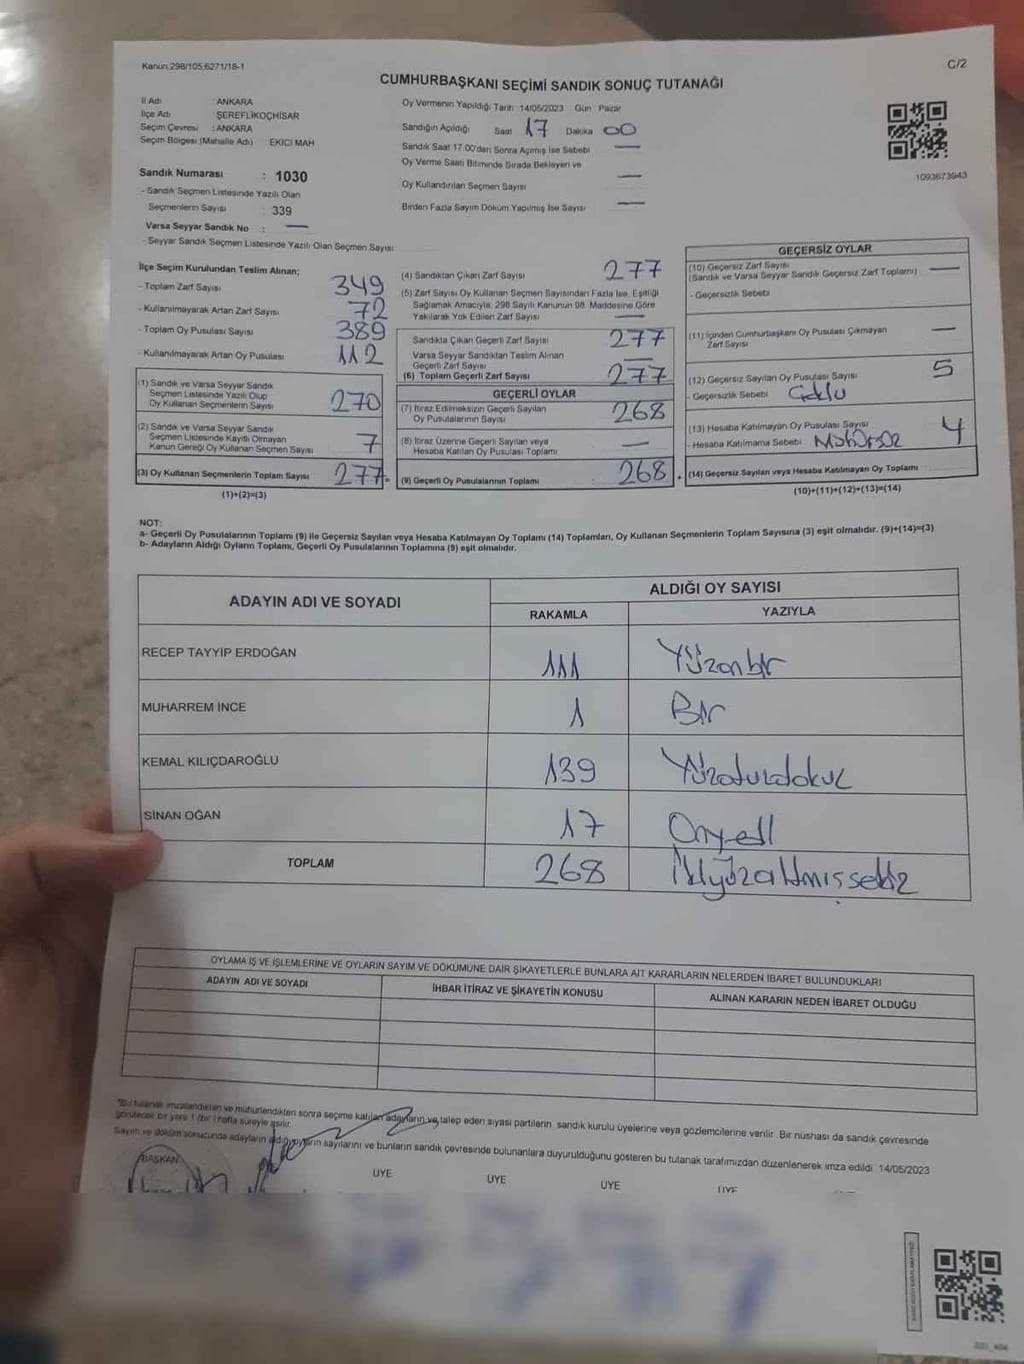 Kanun;298/105;6271/18-1
C/2
CUMHURBAŞKANI SEÇİMİ SANDIK SONUÇ TUTANAĞI
İl Adı : ANKARA
İlçe Adı : ŞEREFLİKOÇHİSAR
Seçim Çevresi : ANKARA
Seçim Bölgesi (Mahalle Adı) EKİCİ MAH
Oy Vermenin Yapıldığı Tarih 14/05/2023 Gün : Pazar
Sandığın Açıldığı Saat 17 Dakika 00
Sandık Saat 17.00'den Sonra Açımış İse Sebebi —
Oy Verme Saati Bitiminde Sırada Bekleyen ve
Oy Kullandırılan Seçmen Sayısı —
Birden Fazla Sayım Döküm Yapılmış İse Sayısı —
1093673943
Sandık Numarası : 1030
- Sandık Seçmen Listesinde Yazılı Olan
Seçmenlerin Sayısı : 339
Varsa Seyyar Sandık No : —
- Seyyar Sandık Seçmen Listesinde Yazılı Olan Seçmen Sayısı
İlçe Seçim Kurulundan Teslim Alınan;
- Toplam Zarf Sayısı 349
- Kullanılmayarak Artan Zarf Sayısı 72
- Toplam Oy Pusulası Sayısı 389
- Kullanılmayarak Artan Oy Pusulası 112
(1) Sandık ve Varsa Seyyar Sandık
Seçmen Listesinde Yazılı Olup
Oy Kullanan Seçmenlerin Sayısı 270
(2) Sandık ve Varsa Seyyar Sandık
Seçmen Listesinde Kayıtlı Olmayan
Kanun Gereği Oy Kullanan Seçmen Sayısı 7
(3) Oy Kullanan Seçmenlerin Toplam Sayısı 277
(1)+(2)=(3)
(4) Sandıktan Çıkan Zarf Sayısı 277
(5) Zarf Sayısı Oy Kullanan Seçmen Sayısından Fazla İse, Eşitliği
Sağlamak Amacıyla, 298 Sayılı Kanunun 98. Maddesine Göre
Yakılarak Yok Edilen Zarf Sayısı —
Sandıkta Çıkan Geçerli Zarf Sayısı 277
Varsa Seyyar Sandıktan Teslim Alınan
Geçerli Zarf Sayısı —
(6) Toplam Geçerli Zarf Sayısı 277
GEÇERLİ OYLAR
(7) İtiraz Edilmeksizin Geçerli Sayılan
Oy Pusulalarının Sayısı 268
(8) İtiraz Üzerine Geçerli Sayılan veya
Hesaba Katılan Oy Pusulası Toplamı —
(9) Geçerli Oy Pusulalarının Toplamı : 268
GEÇERSİZ OYLAR
(10) Geçersiz Zarf Sayısı
(Sandık ve Varsa Seyyar Sandık Geçersiz Zarf Toplamı) —
- Geçersizlik Sebebi
(11) İçinden Cumhurbaşkanı Oy Pusulası Çıkmayan
Zarf Sayısı —
(12) Geçersiz Sayılan Oy Pusulası Sayısı 5
- Geçersizlik Sebebi
(13) Hesaba Katılmayan Oy Pusulası Sayısı 4
- Hesaba Katılmama Sebebi Mühürsüz
(14) Geçersiz Sayılan veya Hesaba Katılmayan Oy Toplamı
(10)+(11)+(12)+(13)=(14)
NOT:
a- Geçerli Oy Pusulalarının Toplamı (9) ile Geçersiz Sayılan veya Hesaba Katılmayan Oy Toplamı (14) Toplamları, Oy Kullanan Seçmenlerin Toplam Sayısına (3) eşit olmalıdır. (9)+(14)=(3)
b- Adayların Aldığı Oyların Toplamı, Geçerli Oy Pusulalarının Toplamına (9) eşit olmalıdır.
ADAYIN ADI VE SOYADI ALDIĞI OY SAYISI
RAKAMLA YAZIYLA
RECEP TAYYİP ERDOĞAN 111 Yüzonbir
MUHARREM İNCE 1 Bir
KEMAL KILIÇDAROĞLU 139 Yüzotuzdokuz
SİNAN OĞAN 17 Onyedi
TOPLAM 268 İkiyüzaltmışsekiz
OYLAMA İŞ VE İŞLEMLERİNE VE OYLARIN SAYIM VE DÖKÜMÜNE DAİR ŞİKAYETLERLE BUNLARA AİT KARARLARIN NELERDEN İBARET BULUNDUKLARI
ADAYIN ADI VE SOYADI İHBAR İTİRAZ VE ŞİKAYETİN KONUSU ALINAN KARARIN NEDEN İBARET OLDUĞU
*Bu tutanak imzalandıktan ve mühürlendikten sonra seçime katılan adayların ve talep eden siyasi partilerin sandık kurulu üyelerine veya gözlemcilerine verilir. Bir nüshası da sandık çevresinde
görülecek bir yere 1 (bir) hafta süreyle asılır.
Sayım ve döküm sonucunda adayların aldığı oyların sayılarını ve bunların sandık çevresinde bulunanlara duyurulduğunu gösteren bu tutanak tarafımızdan düzenlenerek imza edildi. 14/05/2023
BAŞKAN ÜYE ÜYE ÜYE ÜYE